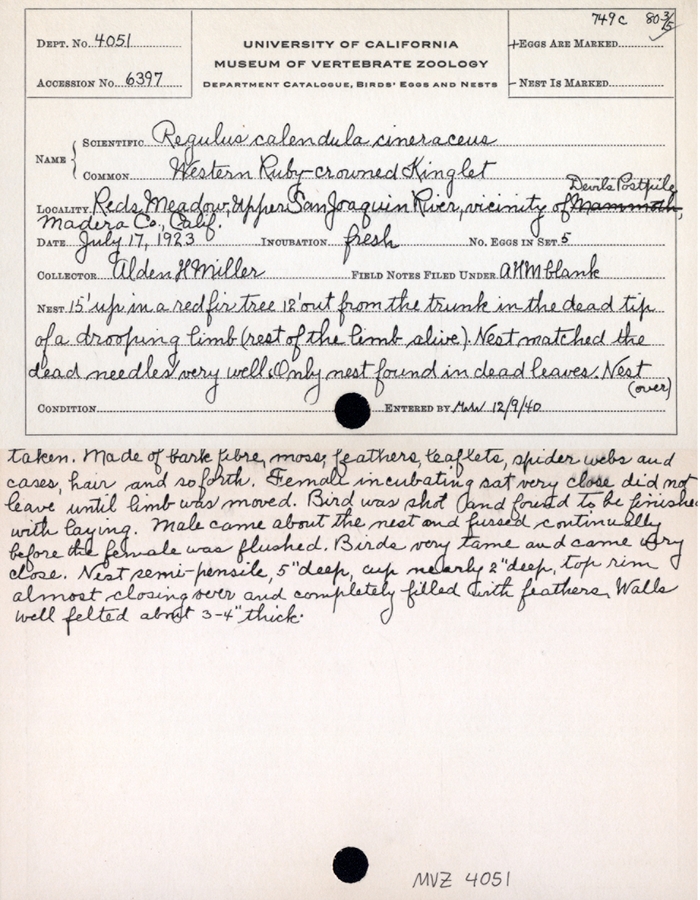 749c 80 3/5
DEPT. NO. 4051
UNIVERSITY OF CALIFORNIA
+EGGS ARE MARKED
MUSEUM OF VERTEBRATE ZOOLOGY
ACCESSION NO. 6397
DEPARTMENT CATALOGUE, BIRDS' EGGS AND NESTS
-NEST IS MARKED
NAME { SCIENTIFIC Regulus calendula cineraceus
COMMON Western Ruby-crowned Kinglet
Devils Postpile
LOCALITY Reds Meadow, Upper San Joaquin River, vicinity of Mammoth,
Madera Co., Calif.
DATE July 17, 1923 INCUBATION fresh NO. EGGS IN SET 5
COLLECTOR Alden H Miller FIELD NOTES FILED UNDER AHM blank
NEST 15' up in a red fir tree 12' out from the trunk in the dead tip
of a drooping limb (rest of the limb alive). Nest matched the
dead needles very well. Only nest found in dead leaves. Nest
(over)
CONDITION ENTERED BY 12/9/40
taken. Made of bark fibre, moss, feathers, leaflets, spider webs and
cases, hair and so forth. Female incubating sat very close did not
leave until limb was moved. Bird was shot and found to be finished
with laying. Male came about the nest and fussed continually
before the female was flushed. Birds very tame and came very
close. Nest semi-pensile, 5" deep, cup nearly 2" deep, top rim
almost closing over and completely filled with feathers. Walls
well felted about 3-4" thick.
MVZ 4051